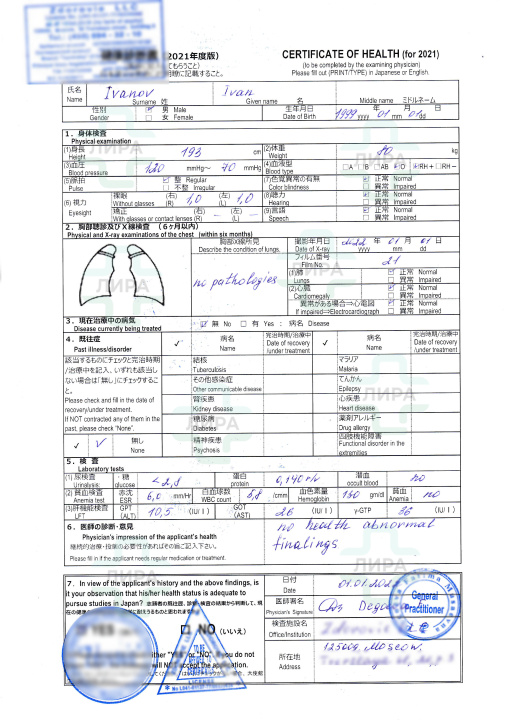 Zdorovie LLC
(2021年度版)
CERTIFICATE OF HEALTH (for 2021)
(to be completed by the examining physician)
Please fill out (PRINT/TYPE) in Japanese or English.
氏名 Name Ivanov Ivan
Surname 姓 Given name 名 Middle name ミドルネーム
性別 Gender 男 Male 女 Female
生年月日 Date of Birth 1999 年 01 月 01 日
yyyy mm dd
1. 身体検査
Physical examination
(1)身長 Height 193 cm
(2)体重 Weight kg
(3)血圧 Blood pressure 120 mmHg～ 70 mmHg
(4)血液型 Blood type A B AB O RH+ RH−
(5)脈拍 Pulse 整 Regular 不整 Irregular
(7)色覚異常の有無 Color blindness 正常 Normal 異常 Impaired
(6) 視力 Eyesight
裸眼 (右) (左)
Without glasses (R) 1,0 (L) 1,0
矯正 (右) (左)
With glasses or contact lenses (R) (L)
(8)聴力 Hearing 正常 Normal 異常 Impaired
(9)言語 Speech 正常 Normal 異常 Impaired
2. 胸部聴診及びX線検査 (6ヶ月以内)
Physical and X-ray examinations of the chest (within six months)
胸部X線所見
Describe the condition of lungs.
no pathologies
撮影年月日 Date of X-ray 年 01 月 01 日
yyyy mm dd
フィルム番号 Film No. 21
(1)肺 Lungs 正常 Normal 異常 Impaired
(2)心臓 Cardiomegaly 正常 Normal 異常 Impaired
異常がある場合⇒心電図
If impaired⇒Electrocardiograph 正常 Normal 異常 Impaired
3. 現在治療中の病気
Disease currently being treated
無 No 有 Yes : 病名 Disease
4. 既往症
Past illness/disorder
病名 Name 完治時期/治療中 Date of recovery /under treatment
病名 Name 完治時期/治療中 Date of recovery /under treatment
該当するものにチェックと完治時期/治療中を記入、いずれも該当しない場合は「無し」にチェックすること。
Please check and fill in the date of recovery/under treatment.
If NOT contracted any of them in the past, please check "None".
無し None
結核 Tuberculosis
マラリア Malaria
その他感染症 Other communicable disease
てんかん Epilepsy
腎疾患 Kidney disease
心疾患 Heart disease
糖尿病 Diabetes
薬剤アレルギー Drug allergy
精神疾患 Psychosis
四肢機能障害 Functional disorder in the extremities
5. 検 査
Laboratory tests
(1) 尿検査 Urinalysis: 糖 glucose <2,8 蛋白 protein 潜血 occult blood no
(2) 貧血検査 Anemia test 赤沈 ESR 6,0 mm/Hr 白血球数 WBC count /cmm 血色素量 Hemoglobin 150 gm/dl 貧血 Anemia no
(3)肝機能検査 LFT GPT (ALT) 10,5 (IU/l) GOT (AST) 26 (IU/l) γ-GTP 36 (IU/l)
6. 医師の診断・意見
Physician's impression of the applicant's health
継続的治療・投薬の必要性があればその旨ご記入下さい。
Please fill in if the applicant needs regular medication or treatment.
no health abnormal
finalings
7. In view of the applicant's history and the above findings, is
it your observation that his/her health status is adequate to
pursue studies in Japan?
NO (いいえ)
日付 Date 01.01.202
医師署名 Physician's Signature
General Practitioner
検査施設名 Office/Institution
所在地 Address 125009, Moscow,
ЛИРА